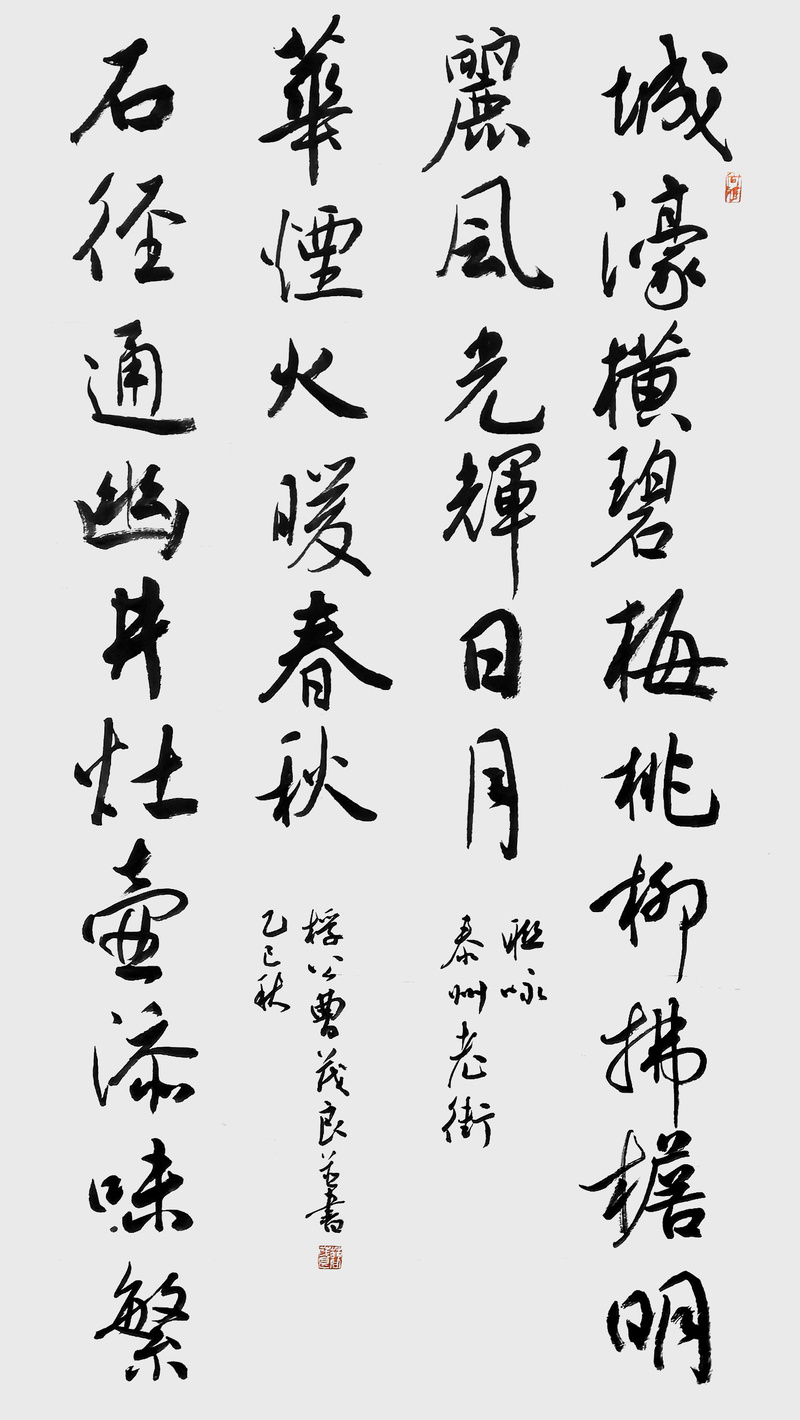 城濠橫碧梅桃柳拂檐明
麗風光輝日月
聯咏
泰州老街
石徑通幽井灶壺添味繁
華煙火暖春秋
桴公曹茂良并書
乙巳秋